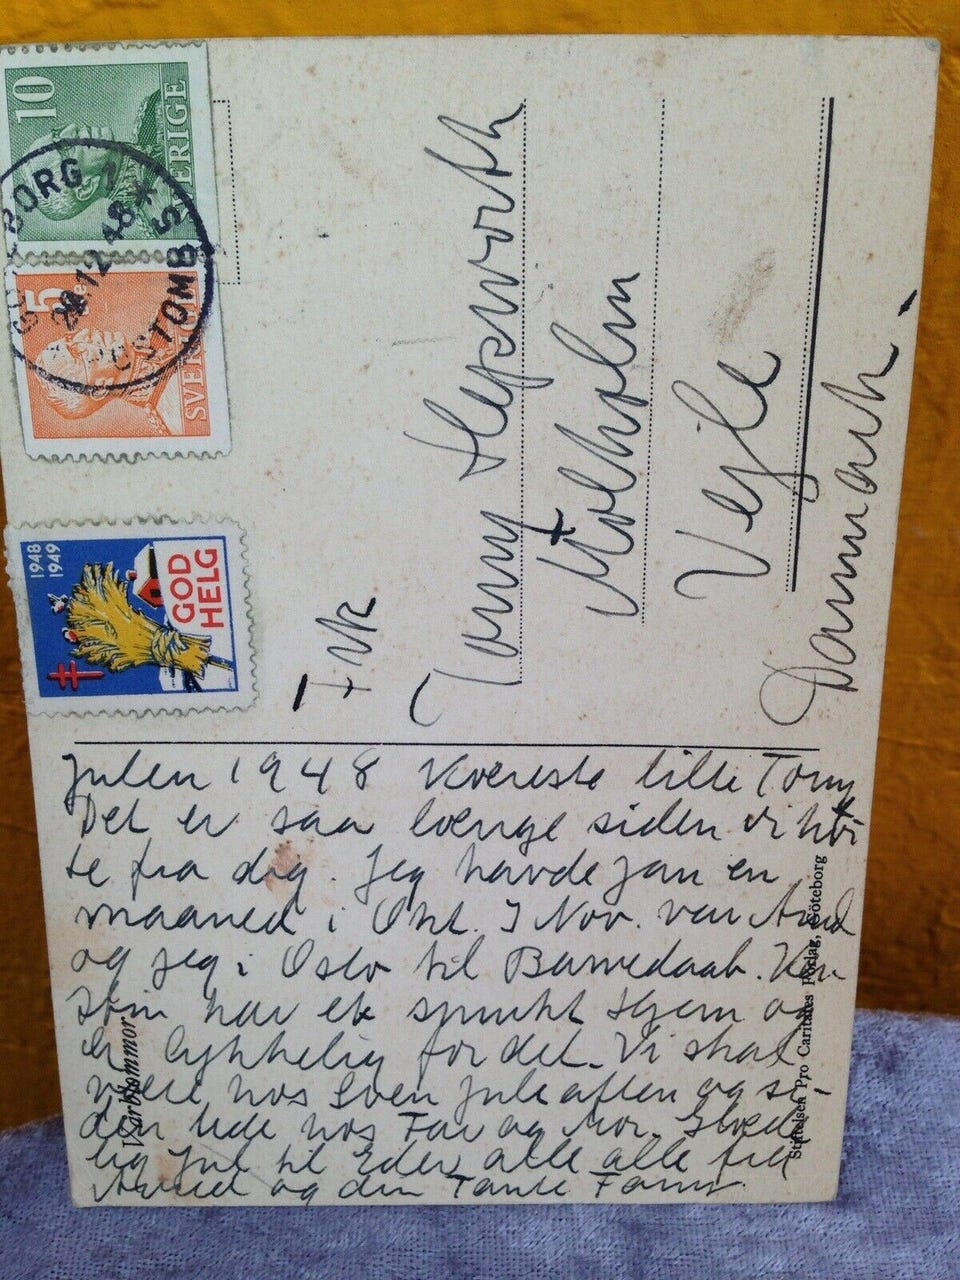 10
SVERIGE
5
SVERIGE
GÖTEBORG 1
12 48
POSTOMB 5
1948
1949
GOD
HELG
Frk
Tony Hepworth
Molholm
Vejle
Danmark.
Julen 1948 Kæreste lille Tony
Det er saa længe siden vi hør
te fra dig. Jeg havde Jan en
maaned i Okt. I Nov. var Arvid
og jeg i Oslo til Barnedaab.
har et smukt Hjem og
er lykkelig for det. Vi skal
være hos Sven Juleaften og si-
den ude hos Far og Mor. Glæde
lig Jul til Eder alle alle fra
Arvid og din Tante Fanny.
Vårblommor
Stiftelsen Pro Caritates Förlag, Göteborg